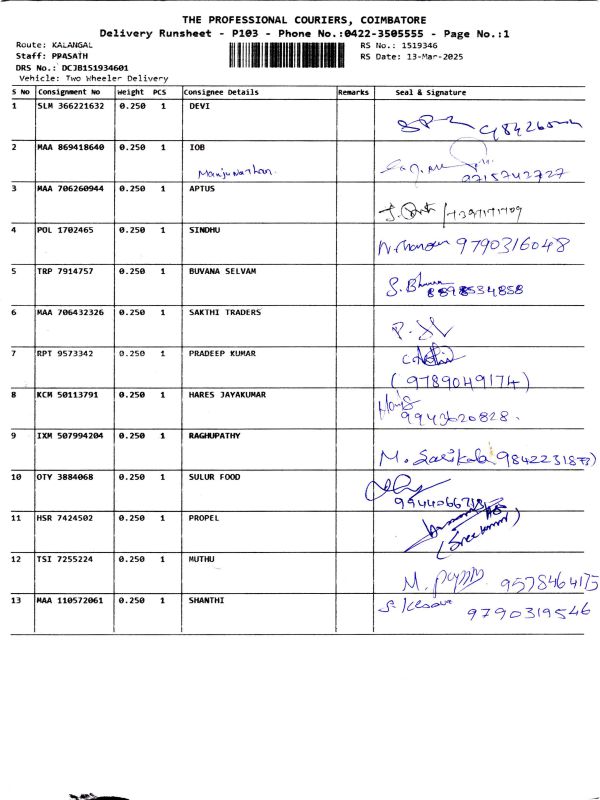 THE PROFESSIONAL COURIERS, COIMBATORE
Delivery Runsheet - P103 - Phone No.:0422-3505555 - Page No.:1
Route: KALANGAL
RS No.: 1519346
Staff: PPASATH
RS Date: 13-Mar-2025
DRS No.: DCJB151934601
Vehicle: Two Wheeler Delivery
S No Consignment No Weight PCS Consignee Details Remarks Seal & Signature
1 SLM 366221632 0.250 1 DEVI
2 MAA 869418640 0.250 1 IOB
Manjunathan.
9715742727
3 MAA 706260944 0.250 1 APTUS
4 POL 1702465 0.250 1 SINDHU
9790316048
5 TRP 7914757 0.250 1 BUVANA SELVAM
S. Bhuvana
8898534858
6 MAA 706432326 0.250 1 SAKTHI TRADERS
7 RPT 9573342 0.250 1 PRADEEP KUMAR
(9789049174)
8 KCM 50113791 0.250 1 HARES JAYAKUMAR
9943620828.
9 IXM 507994204 0.250 1 RAGHUPATHY
M. Sarikala 9842231873)
10 OTY 3884068 0.250 1 SULUR FOOD
11 HSR 7424502 0.250 1 PROPEL
(Sreekumar)
12 TSI 7255224 0.250 1 MUTHU
9578464175
13 MAA 110572061 0.250 1 SHANTHI
9790319546